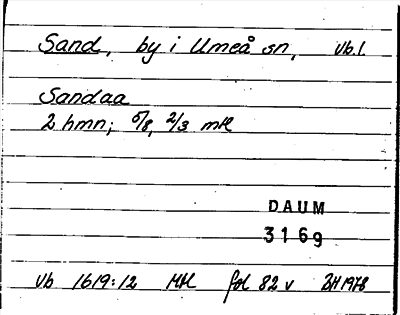 Sand, by i Umeå sn, Vb.l.
Sandaa
2 hmn; 5/8, 2/3 mtl
DAUM
3169
Vb 1619:12 Mtl fol 82 v BH 1978